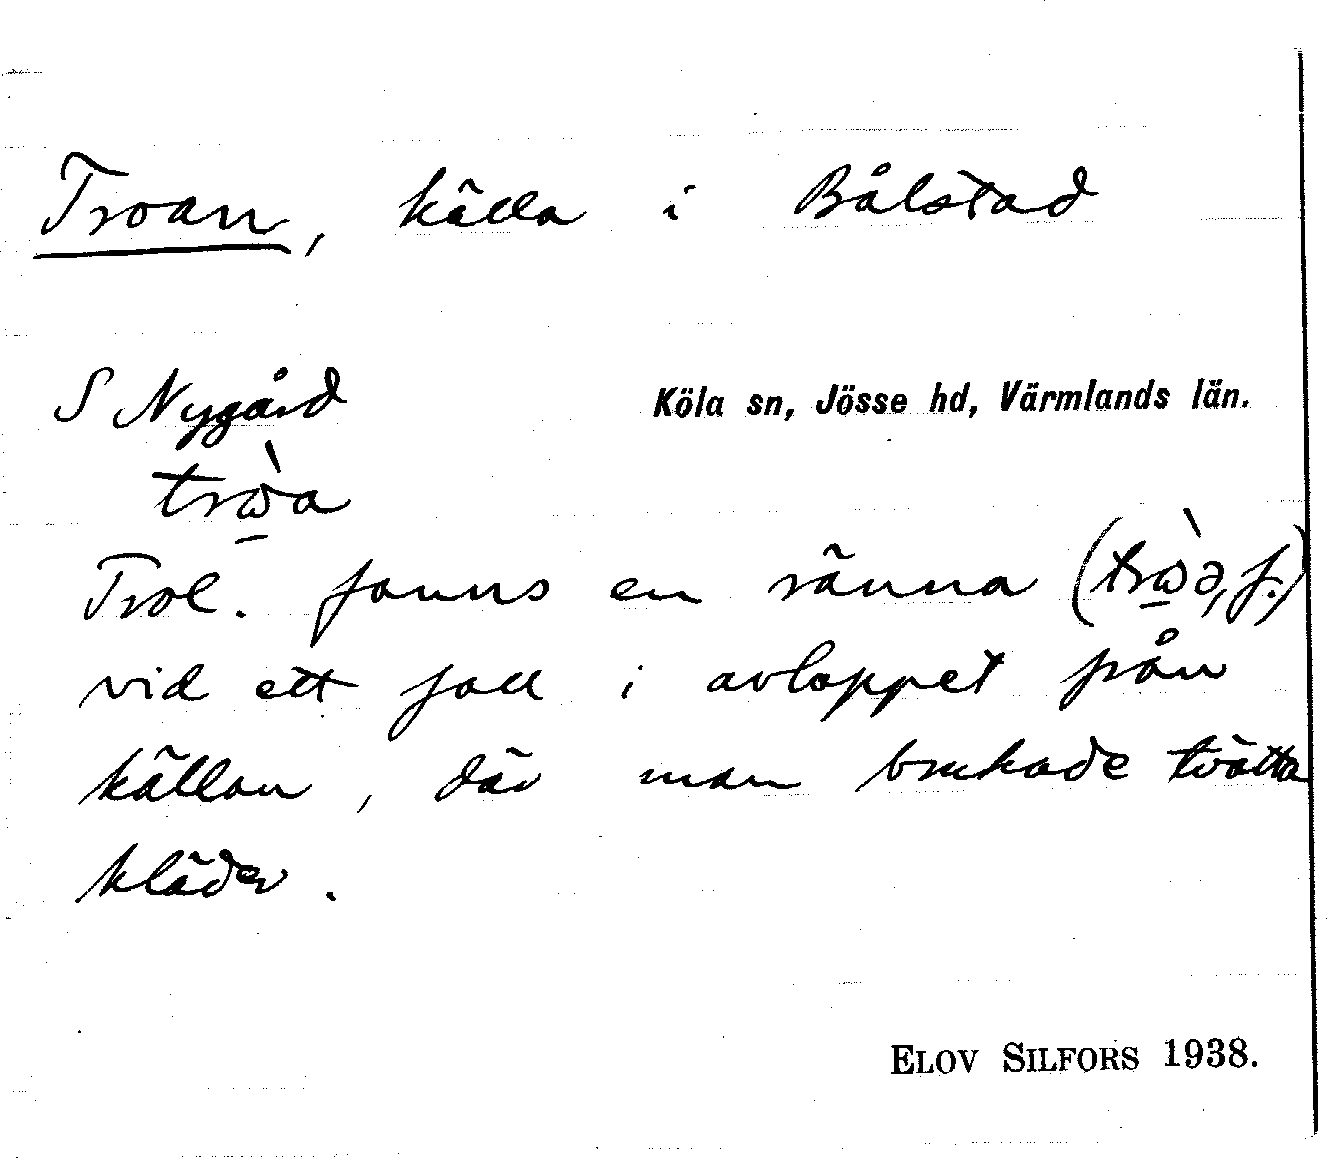 Troan, källa i Bålstad
S Nygård Köla sn, Jösse hd, Värmlands län.
trὼ̠a
Trol. fanns en ränna (trὼ̠ə, f.)
vid ett fall i avloppet från
källan, där man brukade tvätta
kläder.
ELOV SILFORS 1938.